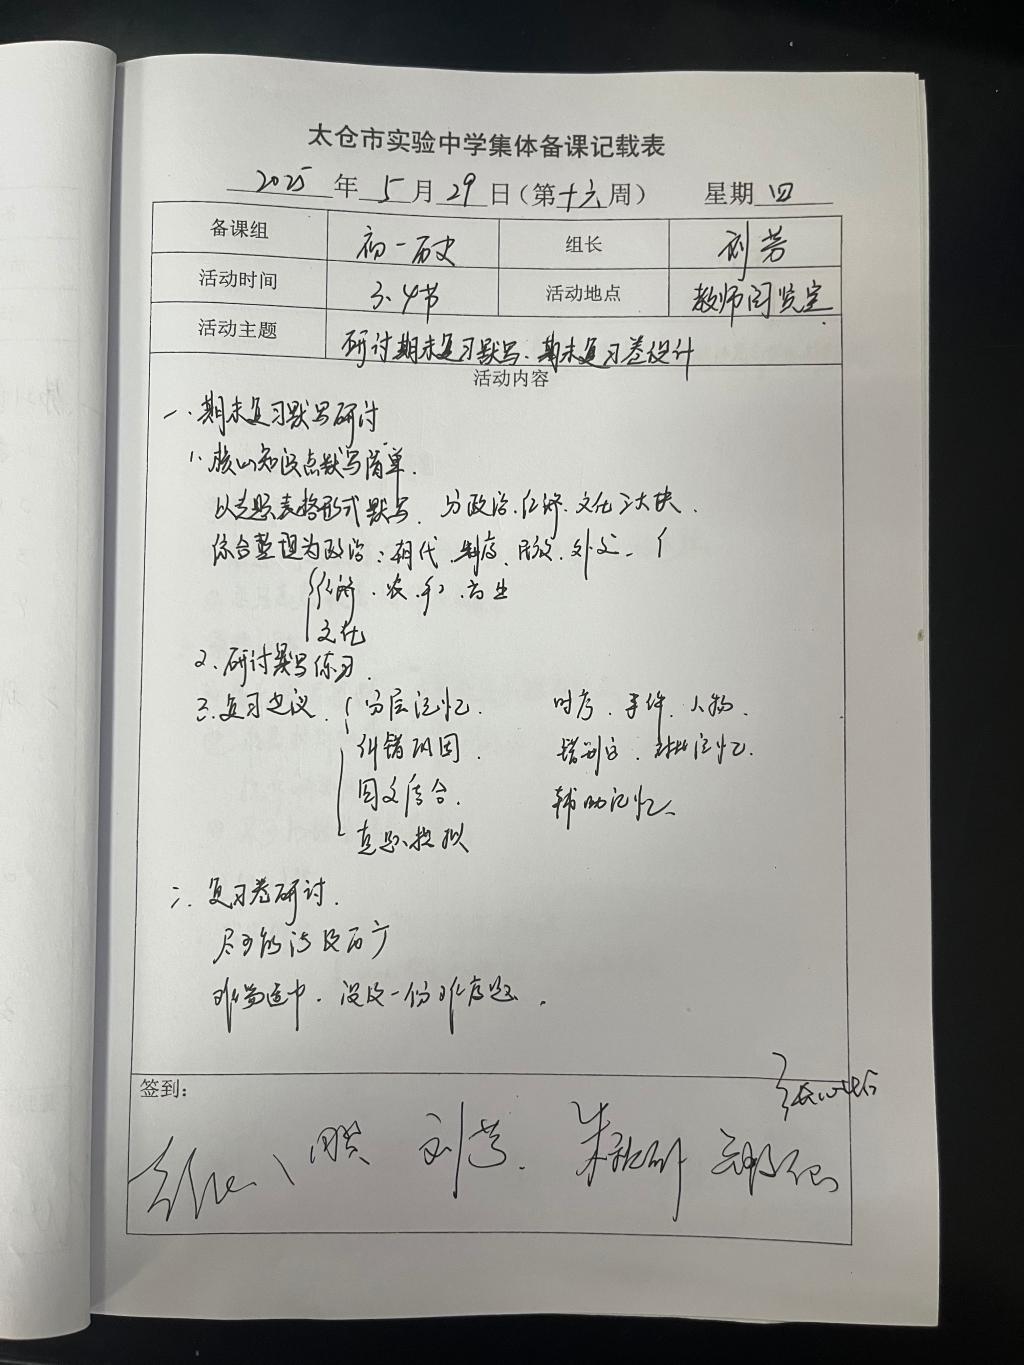 太仓市实验中学集体备课记载表
2025年5月29日(第十六周) 星期四
备课组 初一历史 组长 刘芳
活动时间 3.4节 活动地点 教师阅览室
活动主题 研讨期末复习默写、期末复习卷设计
活动内容
一、期末复习默写研讨
1、核心知识点默写简单.
以专题表格形式默写、分政治、经济、文化三大块.
综合整理为政治:朝代、制度、民族、外交
经济、农、手、商业
文化
2、研讨默写练习.
3、复习建议、分层记忆. 时序、事件、人物.
纠错巩固. 错别字、对比记忆.
图文结合. 辅助记忆
真题模拟
二、复习卷研讨.
尽可能涉及面广
难易适中、没及一份难度题.
签到:
刘芳